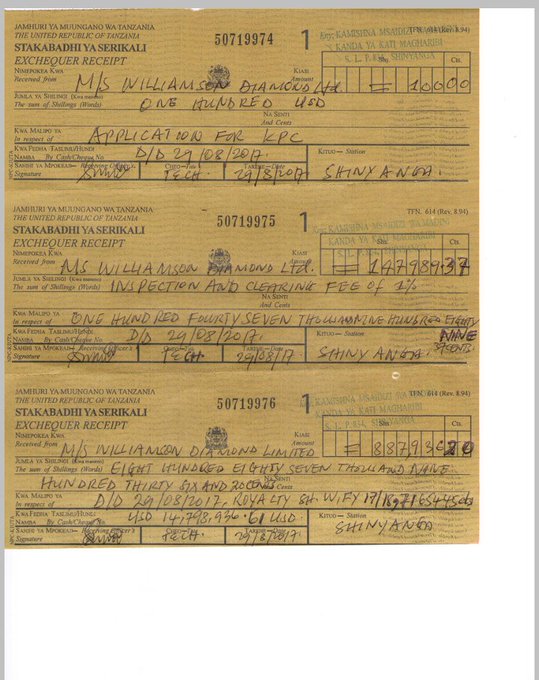 JAMHURI YA MUUNGANO WA TANZANIA
THE UNITED REPUBLIC OF TANZANIA
STAKABADHI YA SERIKALI
EXCHEQUER RECEIPT
50719974
1
TFN. 614 (Rev. 8.94)
KAMISHNA MSAIDIZI
KANDA YA KATI MAGHARIBI
S. L. P. SHINYANGA
NIMEPOKEA KWA
Received from M/S WILLIAMSON DIAMOND Ltd
KIASI
Amount
Shs. Cts.
= 10000
JUMLA YA SHILINGI (Kwa maneno)
The sum of Shillings (Words) ONE HUNDRED USD
NA SENTI
And Cents
KWA MALIPO YA
In respect of APPLICATION FOR KPC
KWA FEDHA TASLIMU/HUNDI
NAMBA By Cash/Cheque No. D/D 29/08/2017
KITUO— Station
SHINYANGA
SAHIHI YA MPOKEAJI— Receiving Officer's
Signature
TECH.
TAREHE—Date
29/8/2017
JAMHURI YA MUUNGANO WA TANZANIA
THE UNITED REPUBLIC OF TANZANIA
STAKABADHI YA SERIKALI
EXCHEQUER RECEIPT
50719975
1
TFN. 614 (Rev. 8.94)
KAMISHNA MSAIDIZI
KANDA YA KATI MAGHARIBI
NIMEPOKEA KWA
Received from M/S WILLIAMSON DIAMOND Ltd.
KIASI
Amount
Shs. Cts.
= 147989.37
JUMLA YA SHILINGI (Kwa maneno)
The sum of Shillings (Words) INSPECTION AND CLEARING FEE of 1%
NA SENTI
And Cents
KWA MALIPO YA
In respect of ONE HUNDRED FOURTY SEVEN THOUSAND NINE HUNDRED EIGHTY
NINE
37 CENTS.
KWA FEDHA TASLIMU/HUNDI
NAMBA By Cash/Cheque No. D/D 29/08/2017.
KITUO— Station
SHINYANGA.
SAHIHI YA MPOKEAJI— Receiving Officer's
Signature
TECH.
TAREHE—Date
29/08/17
JAMHURI YA MUUNGANO WA TANZANIA
THE UNITED REPUBLIC OF TANZANIA
STAKABADHI YA SERIKALI
EXCHEQUER RECEIPT
50719976
1
TFN. 614 (Rev. 8.94)
KAMISHNA MSAIDIZI
KANDA YA KATI MAGHARIBI
SHINYANGA
NIMEPOKEA KWA
Received from M/S WILLIAMSON DIAMOND LIMITED
KIASI
Amount
Shs. Cts.
= 887936 20
JUMLA YA SHILINGI (Kwa maneno)
The sum of Shillings (Words) EIGHT HUNDRED EIGHTY SEVEN THOUSAND NINE
HUNDRED THIRTY SIX AND 20 CENTS
NA SENTI
And Cents
KWA MALIPO YA
In respect of D/D 29/08/2017, ROYALTY
KWA FEDHA TASLIMU/HUNDI
NAMBA By Cash/Cheque No. USD 14,798,936.61 USD.
KITUO— Station
SHINYANGA
SAHIHI YA MPOKEAJI— Receiving Officer's
Signature
TECH.
TAREHE—Date
29/8/2017.